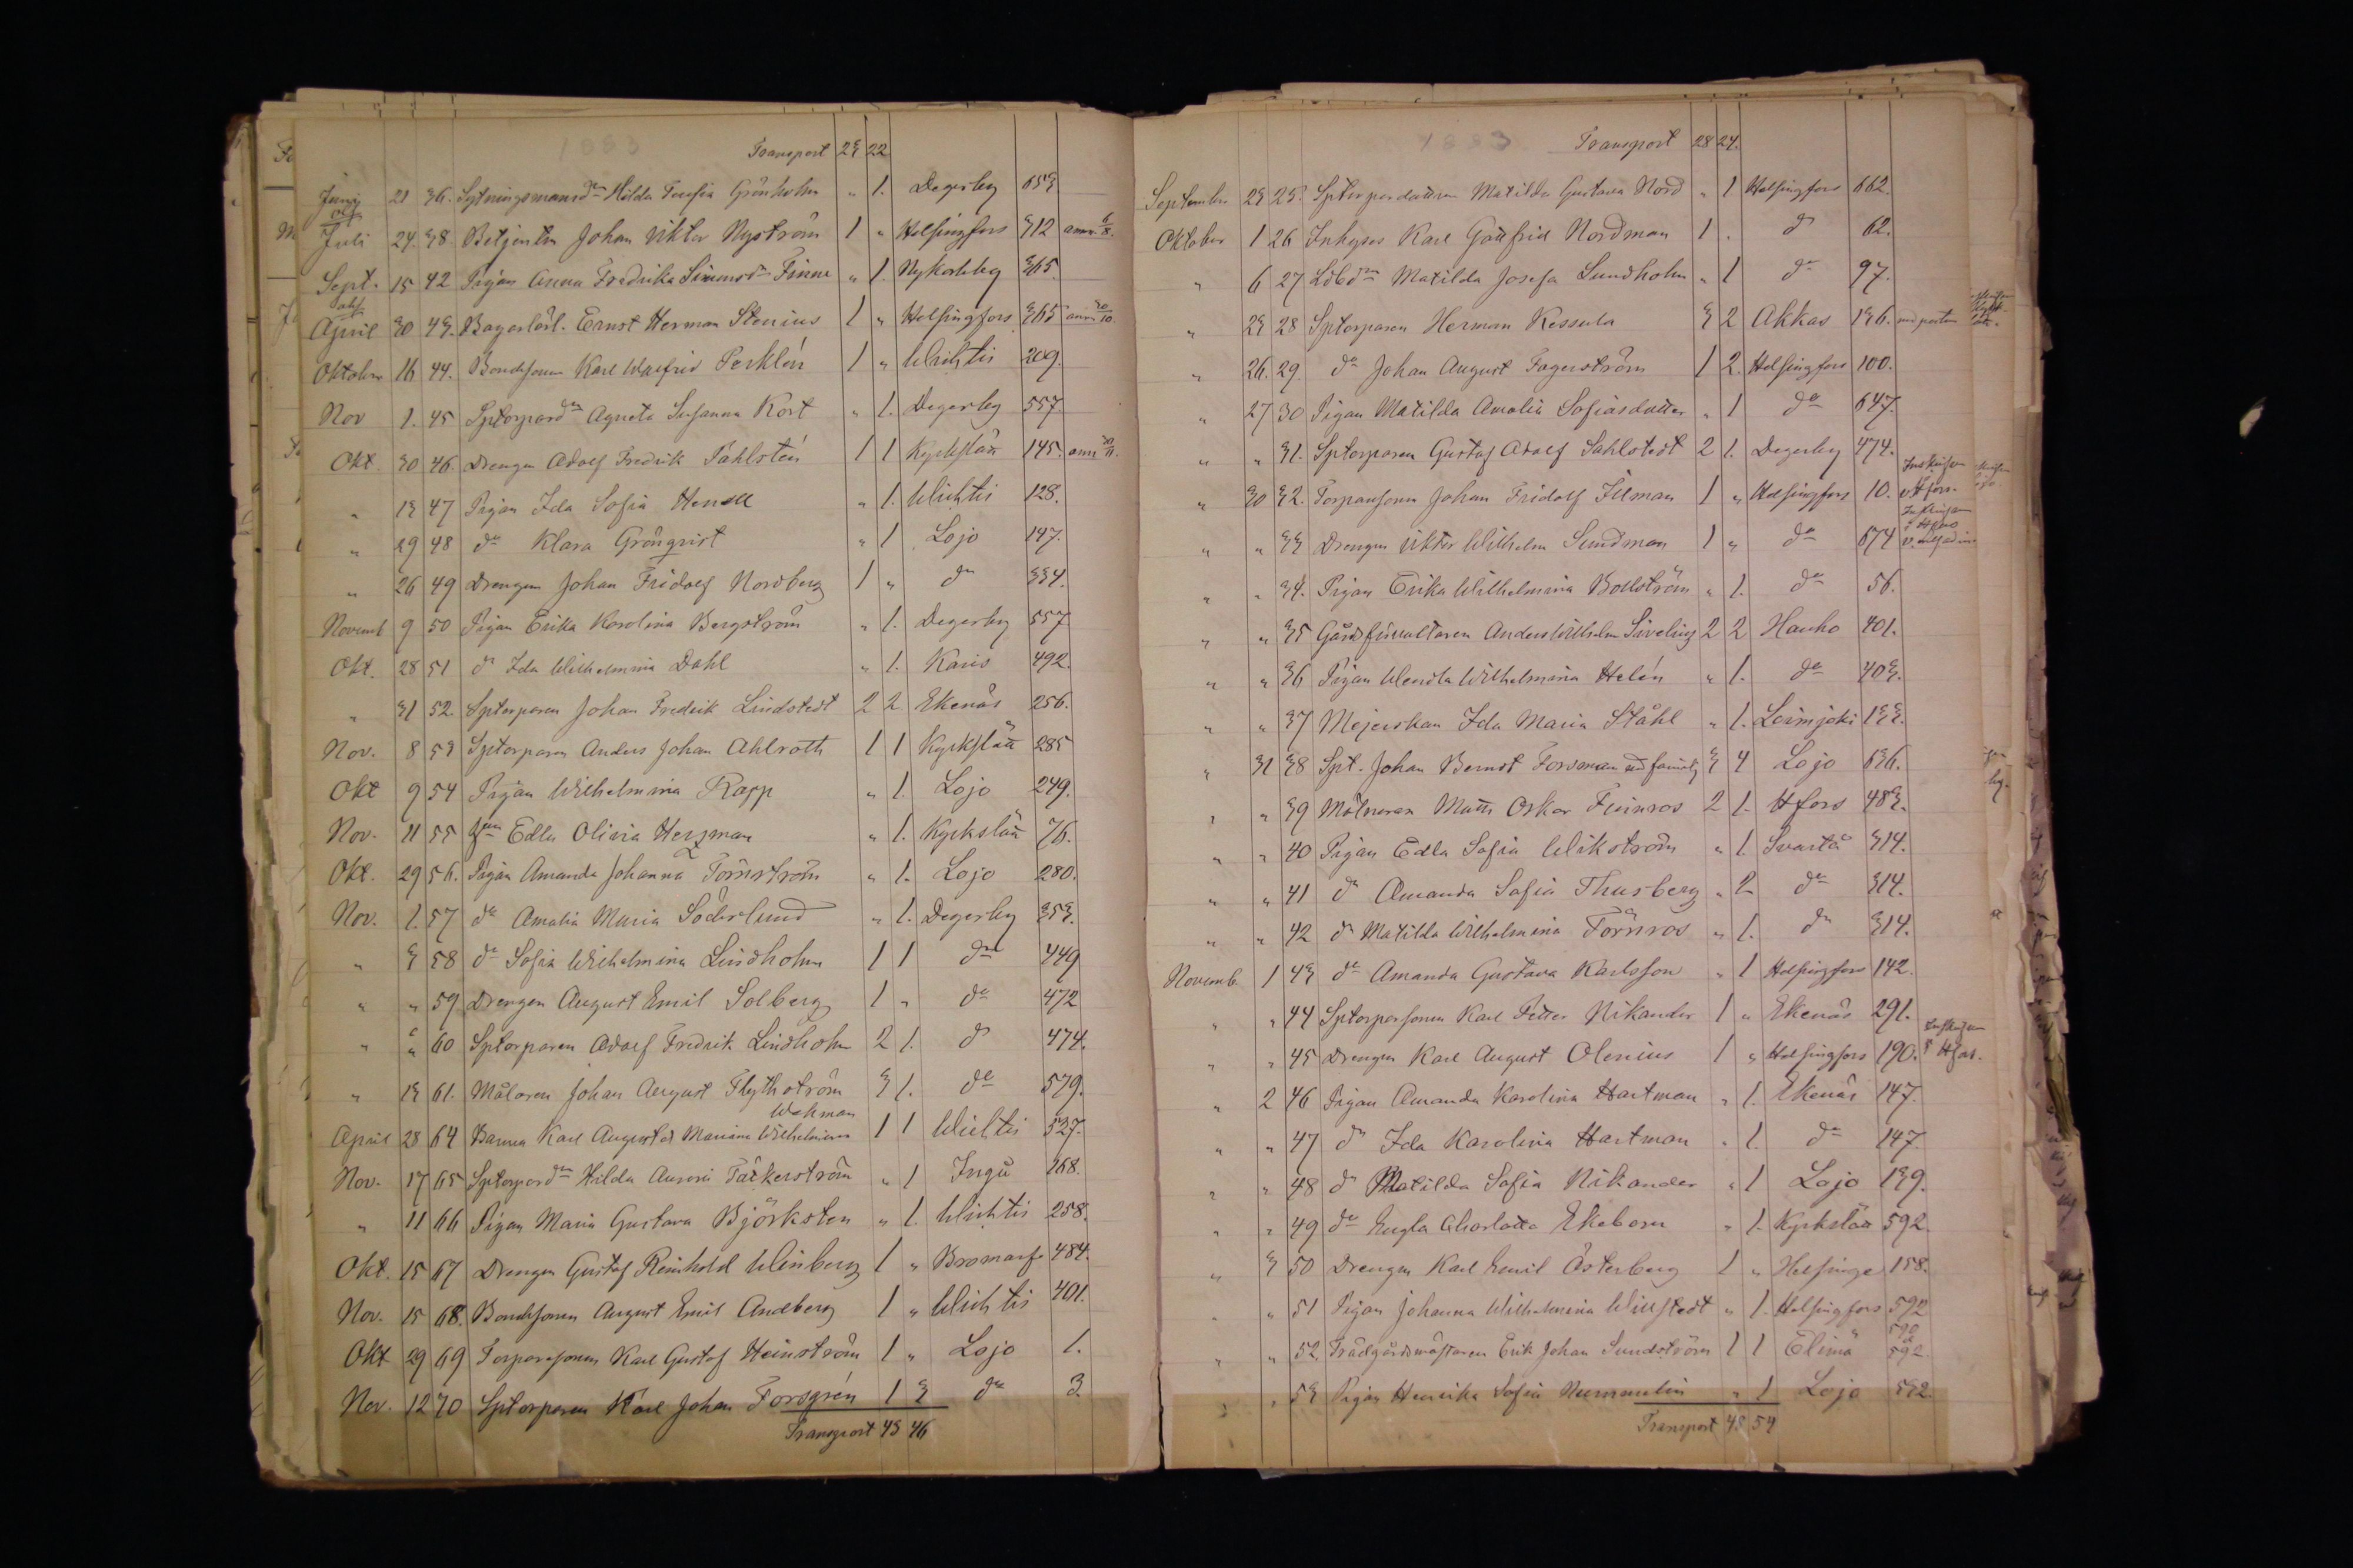 1883
Transport 23 22
Junij 21 36. Sytningsmansdn Hilda Grönholm " 1. Degerby 653
Juli 24. 38. Betjenten Johan Viktor Nyström 1 " Helsingfors 312 ann. 6/8.
Sept. 15 42 Pigan Anna Fredrika Simonsdr Finne " 1. Nykarleby 365.
April 30 43. Bagerilärl. Ernst Herman Stenius 1 " Helsingfors 365 ann. 30/10.
Oktober 16 44. Bondesonen Karl Walfrid Perklén 1 " Wichtis 209.
Nov 1. 45 Sptorpardn Agneta Susanna Kort " 1. Degerby 557
Okt. 30 46. Drengen Adolf Fredrik Pahlstén 1 1 Kyrkslätt 145. ann
" 13 47 Pigan Ida Sofia " 1. Wichtis 128.
" 29 48 do Klara Grönqvist " 1 Lojo 147.
" 26 49 Drengen Johan Fridolf Nordberg 1 " do 334.
Novemb 9 50 Pigan Erika Karolina Bergström " 1. Degerby 557
Okt. 28 51 do Ida Wilhelmina Dahl " 1. Karis 492.
" 31 52. Sptorparen Johan Fredrik Lindstedt 2 2 Ekenäs 256.
Nov. 8 53 Sptorparen Anders Johan Ahlroth 1 1 Kyrkslätt 285
Okt 9 54 Pigan Wilhelmina Rapp " 1. Lojo 249.
Nov. 11 55 Edla Olivia Hergman " 1. Kyrkslätt 76.
Okt. 29 56. Pigan Amanda Johanna Törnström " 1. Lojo 280.
Nov. 1. 57 do Amalia Maria Söderlund " 1. Degerby 353.
" 3 58 do Sofia Wilhelmina Lindholm 1 1 do 449
" " 59 Drengen August Emil Solberg 1 " do 472
" 6 60 Sptorparen Adolf Fredrik Lindholm 2 1. do 474.
" 13 61. Målaren Johan August Flythström 3 1. do 579.
Wekman
April 28 64 Barnen Karl August o. Mariana Wilhelmina 1 1 Wichtis 527.
Nov. 17 65 Sptorpardn Hilda Aurora Täckerström " 1 Ingå 168.
" 11 66 Pigan Maria Gustava Björksten " 1. Wichtis 258.
Okt. 15 67 Drengen Gustaf Reinhold Winberg 1 " Bromarf 484.
Nov. 15 68. Bondesonen August Emil Andberg 1 " Wichtis 401.
Okt 29 69 Torparesonen Karl Gustaf Heinström 1 " Lojo 1.
Nov. 12 70 Sptorparen Karl Johan Forsgrén 1 3 do 3.
Transport 43 46
1883
Transport 28 24.
September 23 25. Sptorpardottren Matilda Gustava Nord " 1 Helsingfors 662.
Oktober 1 26 Inhyses Karl Gottfrid Nordman 1 . do 62.
" 6 27 Matilda Josefa Sundholm " 1 do 97.
" 23 28 Sptorparen Herman Kessula 3 2 Akkas 136.
" 26. 29. do Johan August Fagerström 1 2. Helsingfors 100.
" 27 30 Pigan Matilda Amalia Sofiasdotter . 1 do 647.
" " 31. Sptorparen Gustaf Adolf Sahlstedt 2 1. Degerby 474.
" 30 32. Torparsonen Johan Fridolf Ilman 1 " Helsingfors 10.
" " 33 Drengen Viktor Wilhelm Sundman 1 " do 674
" " 34. Pigan Erika Wilhelmina Bollström " 1. do 56.
" " 35 Gårdsförvaltaren Anders Wilhelm Siveling 2 2 Hauho 401.
" " 36 Pigan Wendla Wilhelmina Helén " 1. do 403.
" " 37 Mejerskan Ida Maria Ståhl " 1. Loimjoki 133.
" 31 38 Spt. Johan Bernst Forsman md familj 3 4 Lojo 636.
" " 39 Mölnaren Matts Oskar Finnros 2 1. Hfors 483.
" " 40 Pigan Edla Sofia Wikström " 1. Svartå 314.
" " 41 do Amanda Sofia Thusberg " 2 do 314.
" " 42 do Matilda Wilhelmina Törnros " 1. do 314.
Novemb. 1 43 do Amanda Gustava Karlsson " 1 Helsingfors 142.
" " 44 Sptorparsonen Karl Petter Nikander 1 " Ekenäs 291.
" " 45 Drengen Karl August Olenius 1 " Helsingfors 190. Hfors.
" 2 46 Pigan Amanda Karolina Hartman " 1. Ekenäs 147.
" " 47 do Ida Karolina Hartman . 1. do 147.
" " 48 do Matilda Sofia Nikander " 1 Lojo 139.
" " 49 do Engla Charlotta Ekebom " 1. Kyrkslätt 592.
" 3 50 Drengen Karl Emil Österberg 1 " Helsinge 158.
" " 51 Pigan Johanna Wilhelmina Winstedt " 1. Helsingfors 592
" " 52. Trädgårdsmästaren Erik Johan Sundström 1 1 Elimä 592.
" " 53 Pigan Henrika Sofia Nummelin " 1 Lojo 592.
Transport 48 54